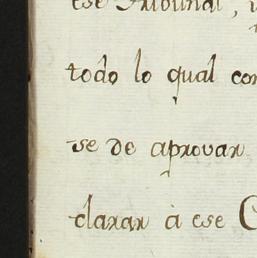 ese Tribunal,
todo lo qual con
se de aprovar
clarar à ese